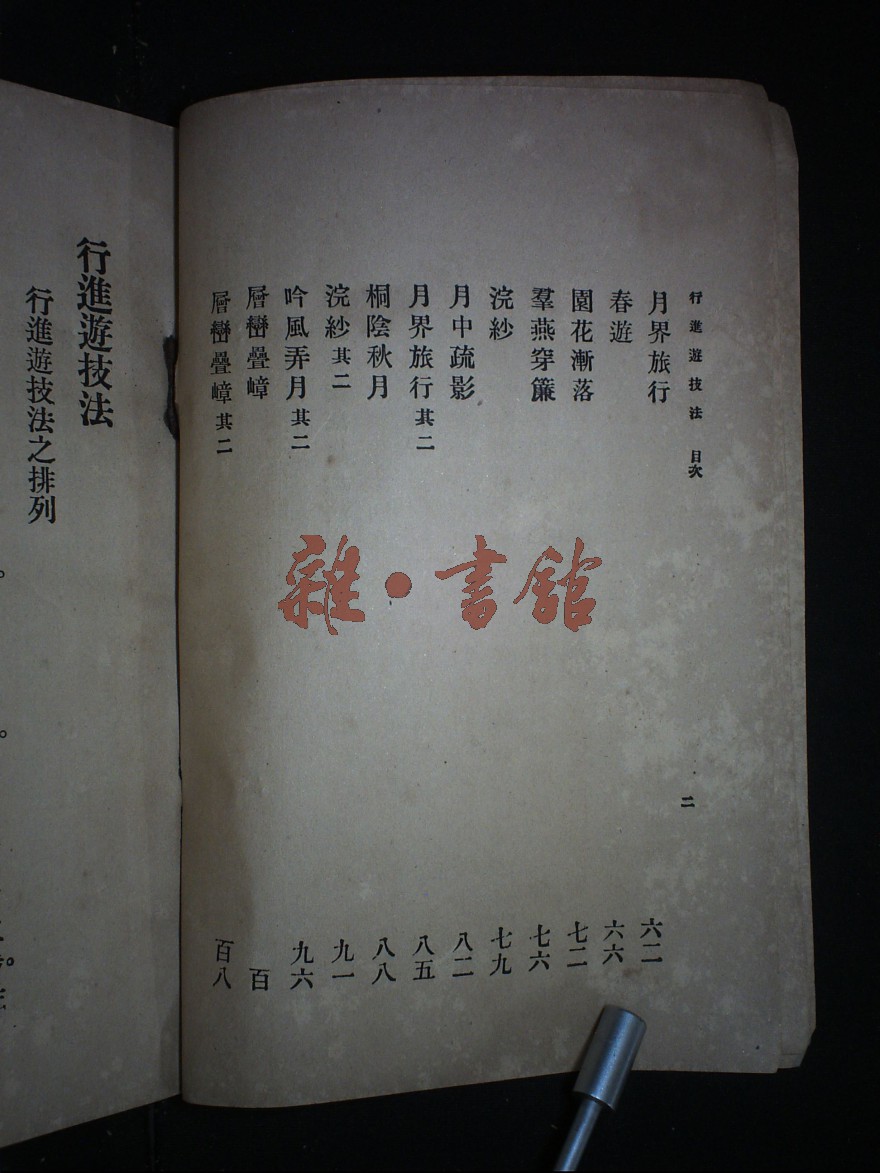 行進遊技法 目次
二
月界旅行 六二
春遊 六六
園花漸落 七二
羣燕穿簾 七六
浣紗 七九
月中疏影 八二
月界旅行其二 八五
桐陰秋月 八八
浣紗其二 九一
吟風弄月其二 九六
層巒疊嶂 百
層巒疊嶂其二 百八
行進遊技法
行進遊技法之排列
雜·書館